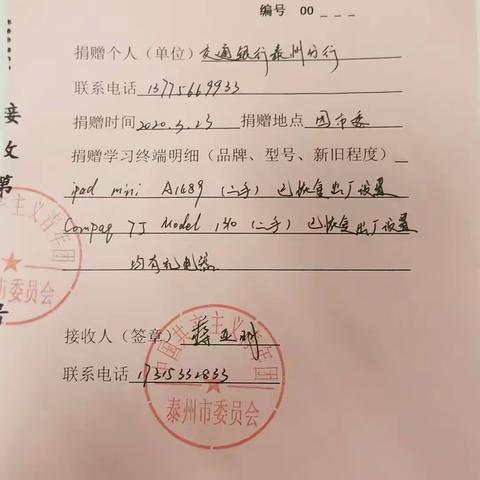 编号 00_ _ _
捐赠个人（单位）交通银行泰州分行
联系电话 13775669933
捐赠时间 2020.3.23 捐赠地点 团市委
捐赠学习终端明细（品牌、型号、新旧程度）
ipad mini A1489（二手）已恢复出厂设置
Compaq 7J Model 140（二手）已恢复出厂设置
均有充电器
接收人（签章）
联系电话 17315332833
中国共产主义青年团
泰州市委员会
接收第
主义青年团
市委员会